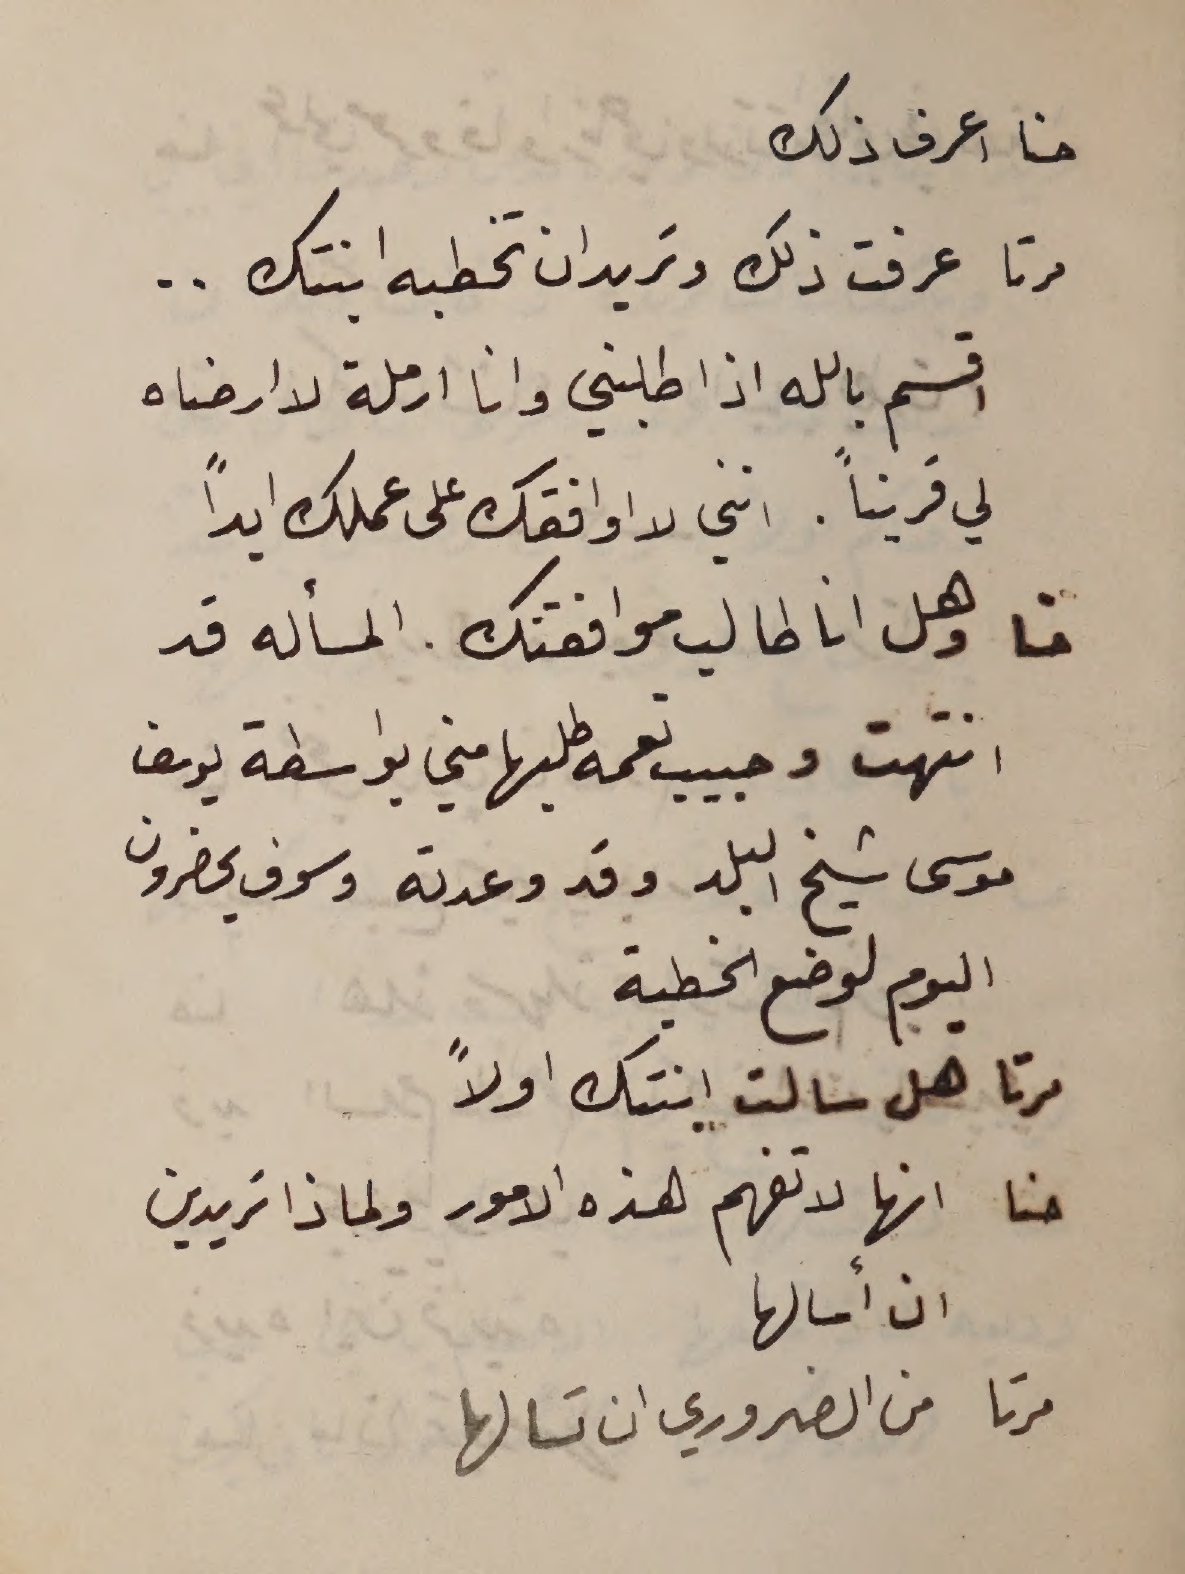 حنا اعرف ذلك
مرتا عرفت ذلك وتريد ان تخطبه ابنتك ..
اقسم بالله اذا طلبني وانا ارملة لا ارضاه
لي قريناً . انني لا اوافقك على عملك ابداً
حنا وهل انا طالب موافقتك . المسأله قد
انتهت وحبيب نعمه طلبها مني بواسطة يوسف
موسى شيخ البلد وقد وعدته وسوف يحضرون
اليوم لوضع الخطبة
مرتا هل سالت ابنتك اولاً
حنا انها لا تفهم هذه الامور ولماذا تريدين
ان أسالها
مرتا من الضروري ان تسالها